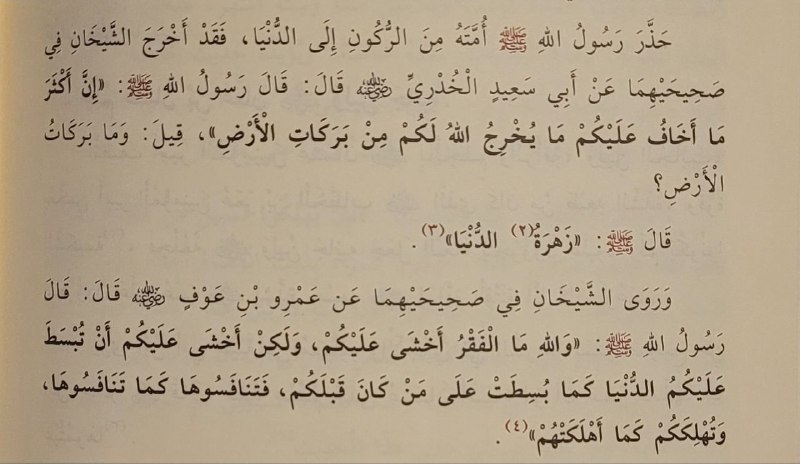 حَذَّرَ رَسُولُ اللهِ ﷺ أُمَّتَهُ مِنَ الرُّكُونِ إِلَى الدُّنْيَا، فَقَدْ أَخْرَجَ الشَّيْخَانِ فِي
صَحِيحَيْهِمَا عَنْ أَبِي سَعِيدٍ الْخُدْرِيِّ رضي الله عنه قَالَ: قَالَ رَسُولُ اللهِ ﷺ: «إِنَّ أَكْثَرَ
مَا أَخَافُ عَلَيْكُمْ مَا يُخْرِجُ اللهُ لَكُمْ مِنْ بَرَكَاتِ الْأَرْضِ»، قِيلَ: وَمَا بَرَكَاتُ
الْأَرْضِ؟
قَالَ ﷺ: «زَهْرَةُ(٢) الدُّنْيَا»(٣).
وَرَوَى الشَّيْخَانِ فِي صَحِيحَيْهِمَا عَن عَمْرِو بْنِ عَوْفٍ رضي الله عنه قَالَ: قَالَ
رَسُولُ اللهِ ﷺ: «وَاللهِ مَا الْفَقْرُ أَخْشَى عَلَيْكُمْ، وَلَكِنْ أَخْشَى عَلَيْكُمْ أَنْ تُبْسَطَ
عَلَيْكُمُ الدُّنْيَا كَمَا بُسِطَتْ عَلَى مَنْ كَانَ قَبْلَكُمْ، فَتَنَافَسُوهَا كَمَا تَنَافَسُوهَا،
وَتُهْلِكَكُمْ كَمَا أَهْلَكَتْهُمْ»(٤).